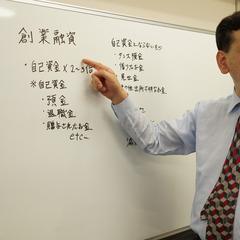 創業融資
・自己資金×2~3倍
※自己資金
・預金
・退職金
・贈与されたお金
etc…
自己資金とならないもの
・タンス預金
・借りたお金
・見せ金